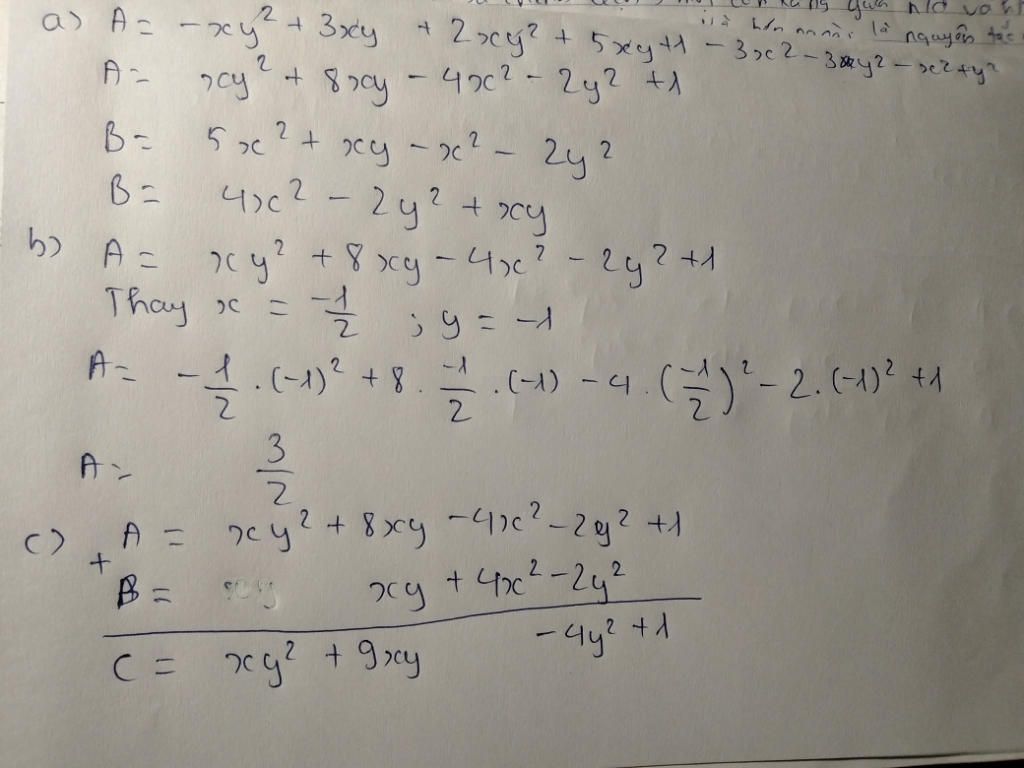 là nguyên tắc
a) A = -xy² + 3xy + 2xy² + 5xy+1 - 3x² - 3y² - x² + y²
A = xy² + 8xy - 4x² - 2y² +1
B = 5x² + xy - x² - 2y²
B = 4x² - 2y² + xy
b) A = xy² + 8xy - 4x² - 2y² +1
Thay x = -1/2 ; y = -1
A = -1/2 . (-1)² + 8 . -1/2 . (-1) - 4 . (-1/2)² - 2. (-1)² +1
A = 3/2
c) A = xy² + 8xy - 4x² - 2y² +1
+
B = xy + 4x² - 2y²
C = xy² + 9xy - 4y² +1